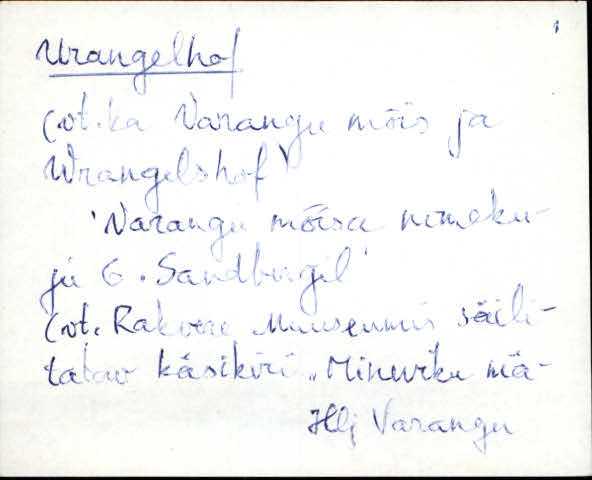 Urangelhof
(vt. ka Varangu mõis ja
Wrangelshof)
'Varangu mõisa nimeku-
ju G. Sandbergil'
(vt. Rakvere Muuseumis säili-
tatav käsikiri „Mineviku mä-
Hlj Varangu